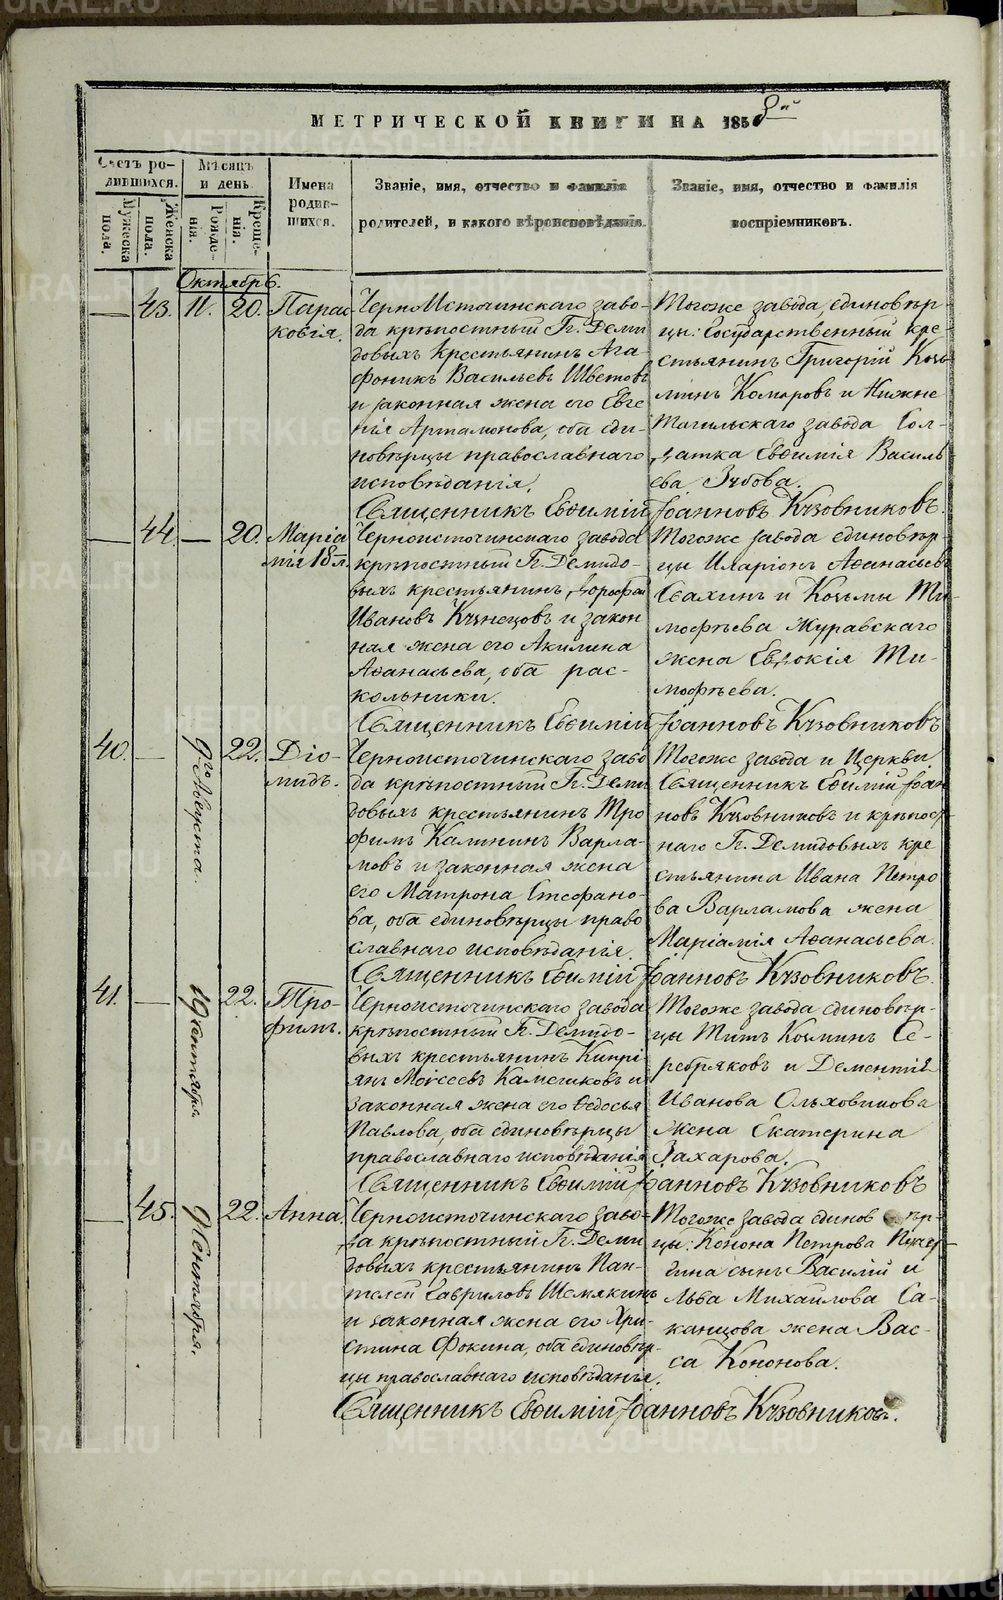 МЕТРИЧЕСКОЙ КНИГИ НА 1858й
Счетъ ро-
дившихся.
Мужеска пола.
Женска пола.
Мѣсяцъ
и день.
Рожде-
нія.
Креще-
нія.
Имена
родив-
шихся.
Званіе, имя, отчество и фамилія
родителей, и какого вѣроисповѣданія.
Званіе, имя, отчество и фамилія
воспріемниковъ.
Октябрь.
43. 11. 20. Парас-
ковія.
ЧерноИсточинскаго заво-
да крѣпостный Гг. Деми
довыхъ крестьянинъ Ага-
фоникъ Васильевъ Шветовъ
и законная жена его Евге
нія Артамонова, оба еди-
новѣрцы православнаго
исповѣданія.
Тогоже завода, единовѣр
цы: Государственный кре-
стьянинъ Григорій Козь
минъ Комаровъ и Нижне
Тагильскаго завода Сол-
датка Евѳимія Василь
ева Зубова.
Священникъ Евѳимій Іоанновъ Кузовниковъ.
44. — 20. Маріа
мія 18 л.
Черноисточинскаго завода
крѣпостный Гг. Демидо-
выхъ крестьянинъ Дорофей
Ивановъ Кузнецовъ и закон
ная жена его Акилина
Аѳанасьева, оба рас-
кольники.
Тогоже завода единовѣр
цы Иларіонъ Аѳанасьевъ
Свахинъ и Козьмы Ти-
мофѣева Журавскаго
жена Евдокія Ти-
мофѣева.
Священникъ Евѳимій Іоанновъ Кузовниковъ
40. 9го Августа 22. Діо-
мидъ.
Черноисточинскаго заво
да крѣпостный Гг. Деми
довыхъ крестьянинъ Тро
фимъ Калининъ Варла-
мовъ и законная жена
его Матрона Стефано-
ва, оба единовѣрцы право
славнаго исповѣданія.
Тогоже завода и Церкви
Священникъ Евѳимій Іоан
новъ Кузовниковъ и крѣпост
наго Гг. Демидовыхъ кре
стьянина Ивана Петро
ва Варламова жена
Маріамія Аѳанасьева.
Священникъ Евѳимій Іоанновъ Кузовниковъ.
41. 19 Сентября 22. Тро-
фимъ.
Черноисточинскаго завода
крѣпостный Гг. Демидо-
выхъ крестьянинъ Кипрі
янъ Моисеевъ Камешковъ и
законная жена его Ѳедосья
Павлова, оба единовѣрцы
православнаго исповѣданія
Тогоже завода единовѣр-
цы Титъ Козминъ Се-
ребряковъ и Дементія
Иванова Ольховикова
жена Екатерина
Захарова.
Священникъ Евѳимій Іоанновъ Кузовниковъ
45. 9 Сентября. 22. Анна.
Черноисточинскаго заво-
да крѣпостный Гг. Деми
довыхъ крестьянинъ Пан-
телей Гавриловъ Шемякинъ
и законная жена его Хри-
стина Фокина, оба единовѣр-
цы православнаго исповѣданія.
Тогоже завода единовѣр-
цы: Конона Петрова
сынъ Василій и
Льва Михаилова Са-
канцова жена Вас-
са Кононова.
Священникъ Евѳимій Іоанновъ Кузовниковъ.
METRIKI.GASO-URAL.RU